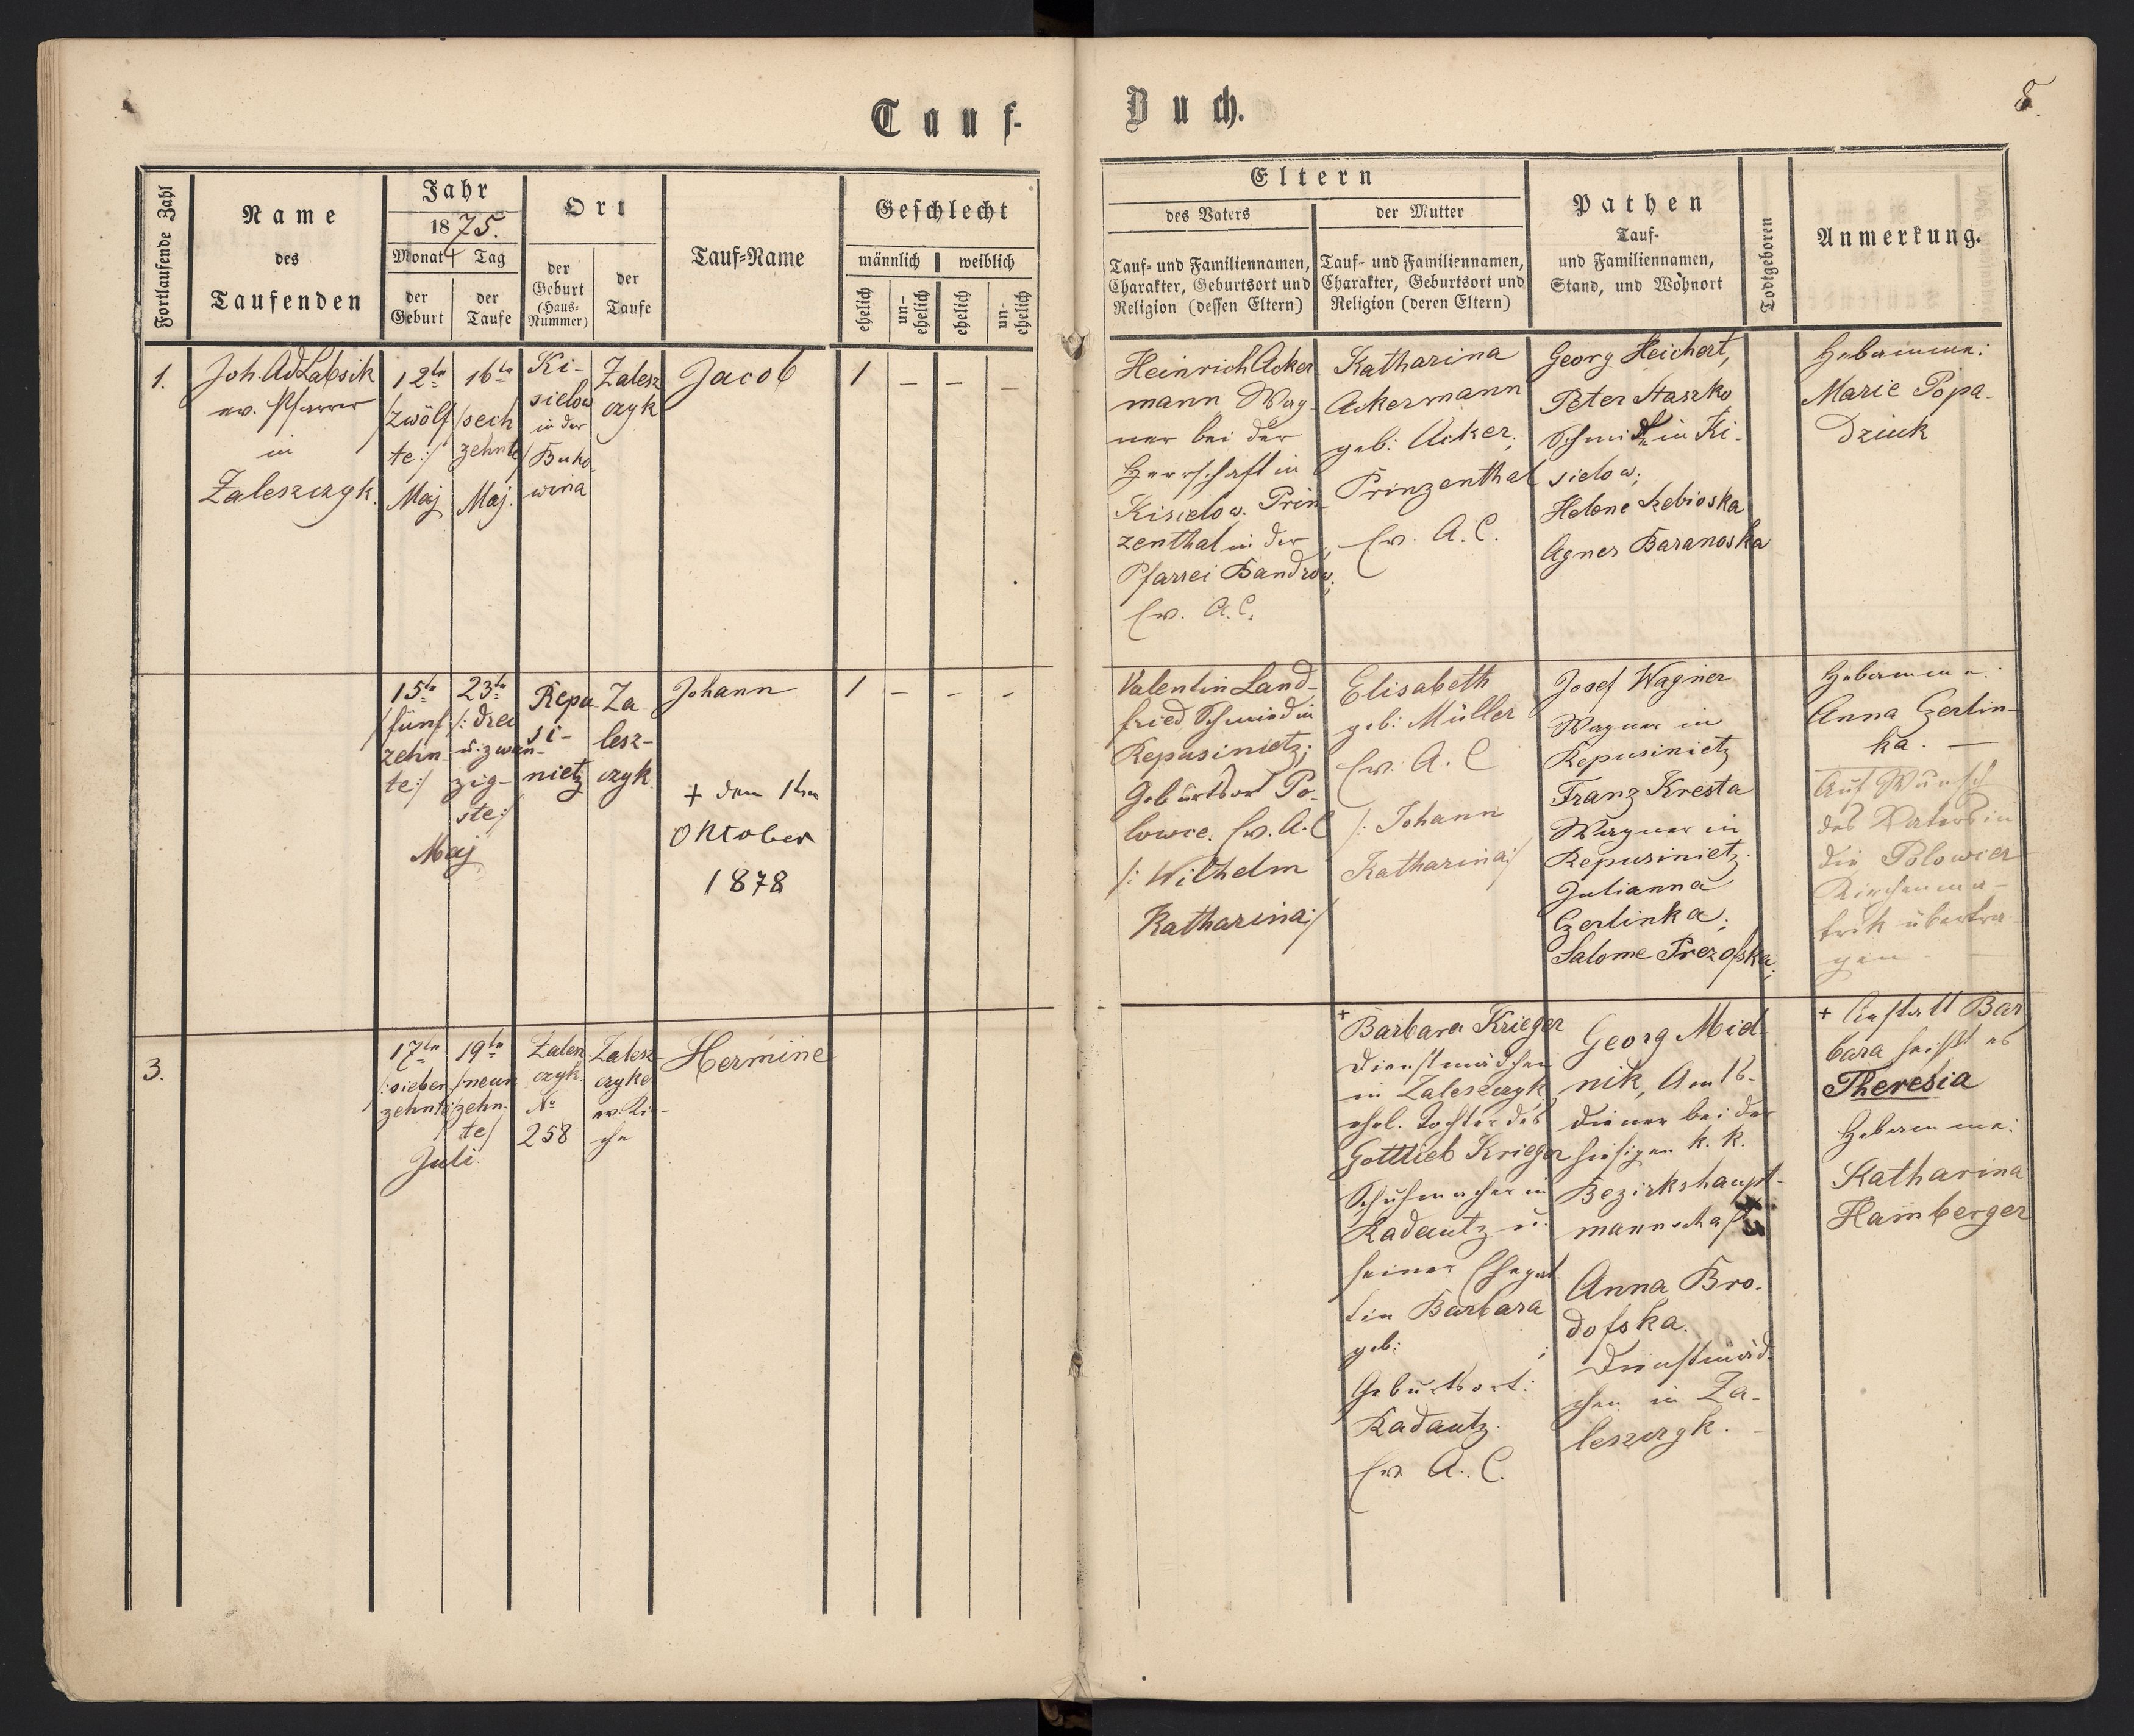 Tauf-
Buch.
8.
Fortlaufende Zahl
Name
des
Taufenden
Jahr
1875.
Monat Tag
der
Geburt
der
Taufe
Ort
der
Geburt
(Haus-
Nummer)
der
Taufe
Tauf-Name
Geschlecht
männlich weiblich
ehelich
un-
ehelich
ehelich
un-
ehelich
Eltern
des Vaters
Tauf- und Familiennamen,
Charakter, Geburtsort und
Religion (dessen Eltern)
der Mutter
Tauf- und Familiennamen,
Charakter, Geburtsort und
Religion (deren Eltern)
Pathen
Tauf-
und Familiennamen,
Stand, und Wohnort
Todtgeboren
Anmerkung.
1.
Joh. Ad Labsik
ev. Pfarrer
in
Zaleszczyk.
12te
/zwölf
te:/
Maj
16te
/sech
zehnte/
Maj.
Ki-
sielow
in der
Buko-
wina
Zalesz
czyk
Jacob
1 – – –
Heinrich Acker
mann Wag-
ner bei der
Herrschaft in
Kisielow. Prin
zenthal in der
Pfarrei Bandrow;
Ev. A. C.
Katharina
Ackermann
geb: Acker;
Prinzenthal
Ev. A. C.
Georg Heichert,
Peter Staszko
Schmidt in Ki-
sielow;
Helene Rebioska
Agnes Baranoska
Hebamme:
Marie Popa-
dziuk
15te
/fünf
zehn-
te:/
23te
/: drei
u. zwan-
zig-
ste:/
Maj
Repu
si-
nietz
Za
lesz-
czyk
Johann
+ den 1ten
Oktober
1878
1 – – –
Valentin Land-
fried Schmied in
Repusinietz;
Geburtsort Po-
lowce. Ev. A. C
/: Wilhelm
Katharina:/
Elisabeth
geb: Müller
Ev. A. C
/: Johann
Katharina:/
Josef Wagner
Wagner in
Repusinietz
Franz Kresta
Wagner in
Repusinietz.
Julianna
Czerlinka;
Salome Prezofska;
Hebamme:
Anna Czerlin-
ka. —
Auf Wunsch
des Vaters in
die Polowcer
Kirchenma-
trik übertra-
gen. —
3.
17te
/:sieben-
zehnte:/
19te
/neun
zehn-
te/
Juli.
Zalesz
czyk.
No
258
Zalesz-
czyker
ev. Kir-
che
Hermine
+
Barbara Krieger
Dienstmädchen
in Zaleszczyk;
ehel. Tochter des
Gottlieb Krieger
Schuhmacher in
Radautz u.
seiner Ehegat
tin Barbara
geb: ;
Geburtsort:
Radautz.
Ev. A. C.
Georg Mid-
nik, Amts-
diener bei der
hiesigen k. k.
Bezirkshaupt-
mannschaft
Anna Bro-
dofska.
Dienstmäd-
chen in Za-
leszczyk. –
+ Anstatt Bar
bara heißt es
Theresia
Hebamme:
Katharina
Hamberger